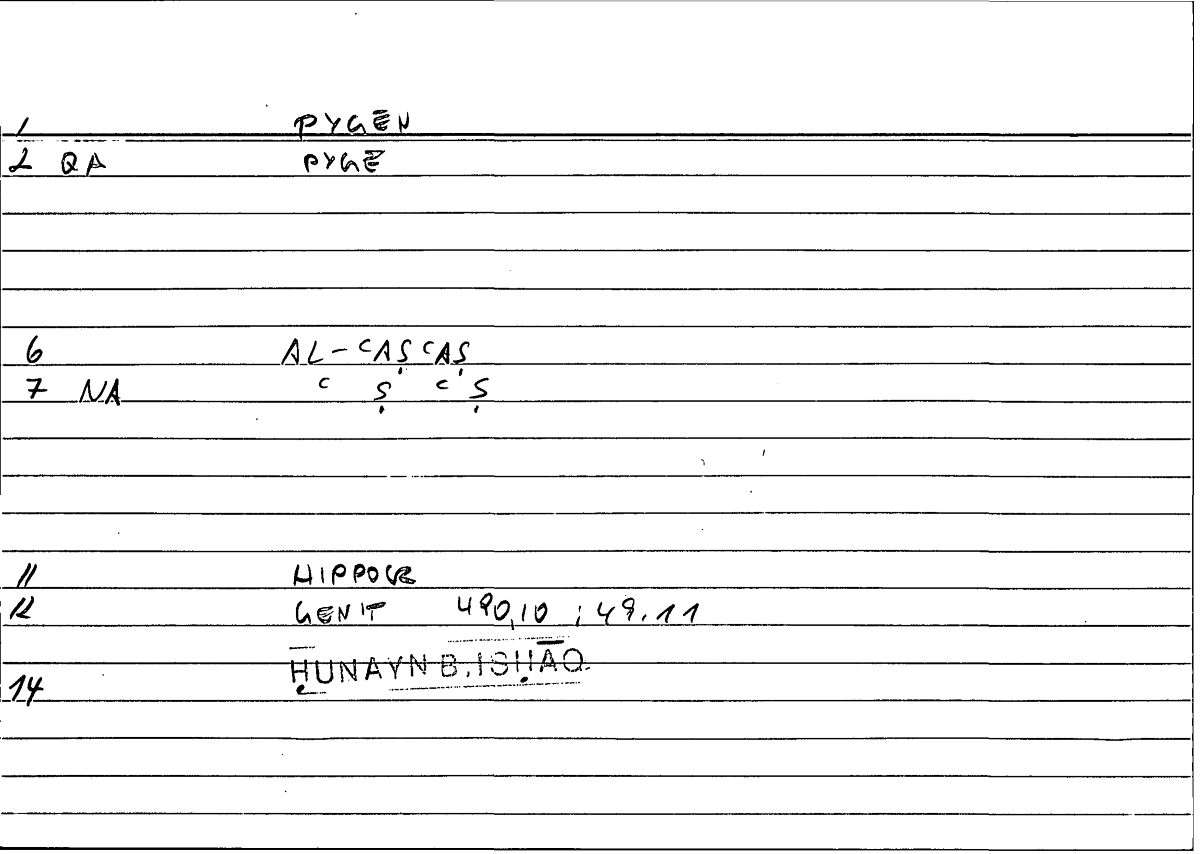 1 PYGĒN
2 QA PYGĒ
6 AL-ʿAṢʿAṢ
7 NA ʿ Ṣ ʿ Ṣ
11 HIPPOCR
12 GENIT 490,10 ; 49.11
ḤUNAYN B. ISḤĀQ
14